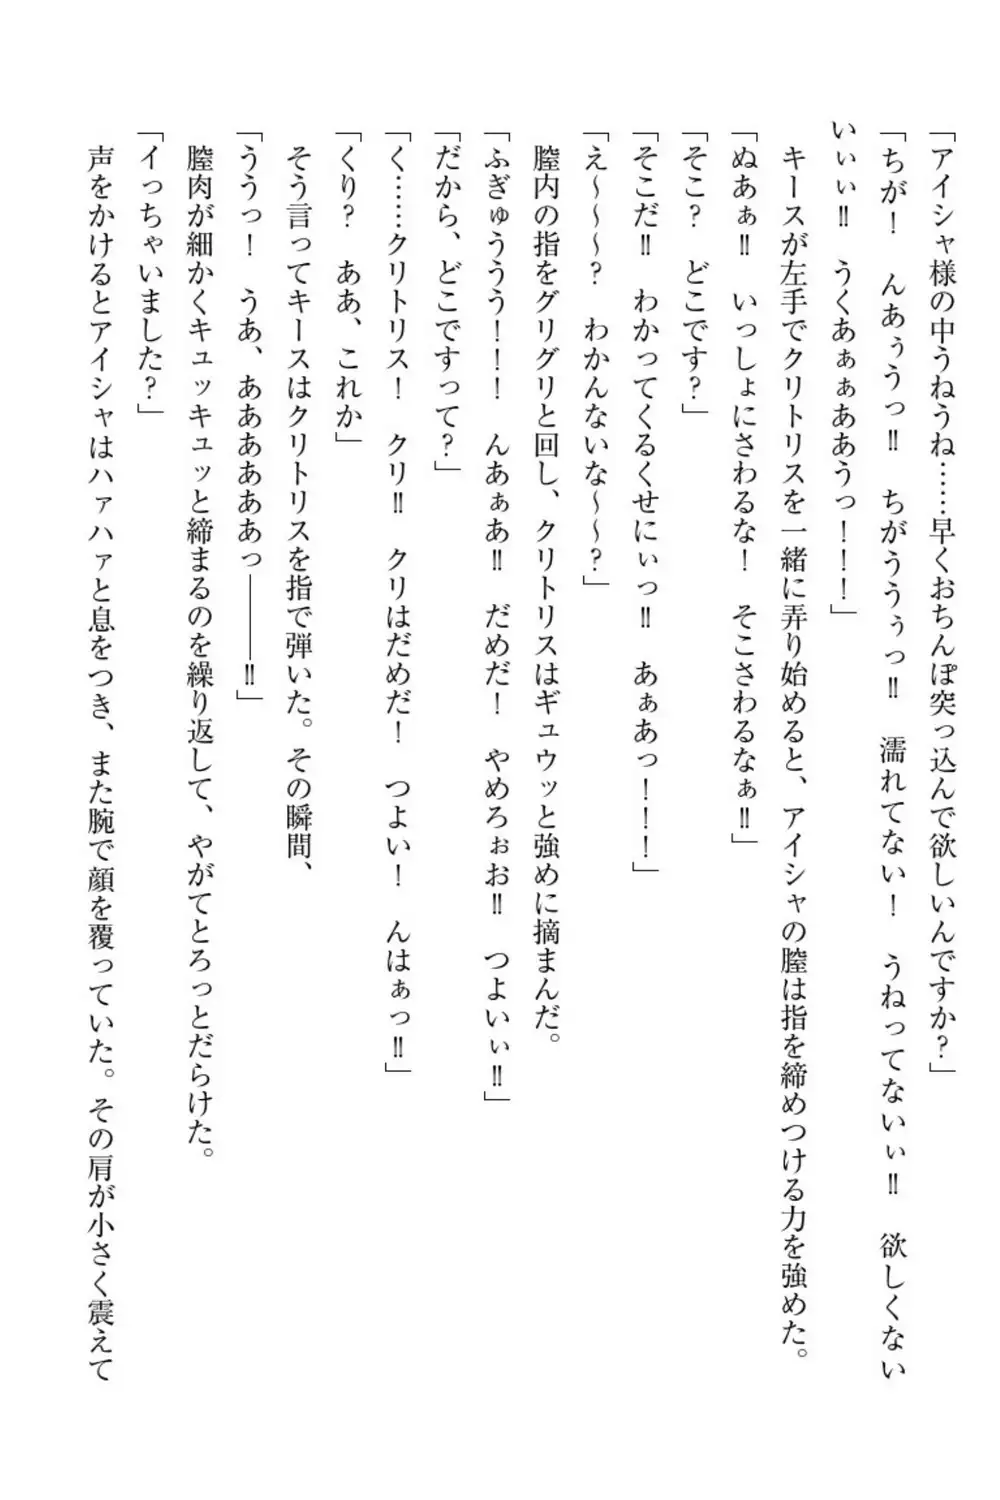 「アイシャ様の中うねうね……早くおちんぽ突っ込んで欲しいんですか?」
「ちが!　んあぅうっ‼　ちがううぅっ‼　濡れてない!　うねってないぃ‼　欲しくない
いぃぃ‼　うくあぁぁああうっ!!!」
　キースが左手でクリトリスを一緒に弄り始めると、アイシャの膣は指を締めつける力を強めた。
「ぬあぁ‼　いっしょにさわるな!　そこさわるなぁ‼」
「そこ?　どこです?」
「そこだ‼　わかってくるくせにぃっ‼　あぁあっ!!!」
「え～～～?　わかんないな～～?」
　膣内の指をグリグリと回し、クリトリスはギュウッと強めに摘まんだ。
「ふぎゅううう!!!　んあぁあ‼　だめだ!　やめろぉお‼　つよいぃ‼」
「だから、どこですって?」
「く……クリトリス!　クリ‼　クリはだめだ!　つよい!　んはぁっ‼」
「くり?　ああ、これか」
　そう言ってキースはクリトリスを指で弾いた。その瞬間、
「ううっ!　うあ、ああああああっ————‼」
　膣肉が細かくキュッキュッと締まるのを繰り返して、やがてとろっとだらけた。
「イっちゃいました?」
　声をかけるとアイシャはハァハァと息をつき、また腕で顔を覆っていた。その肩が小さく震えて